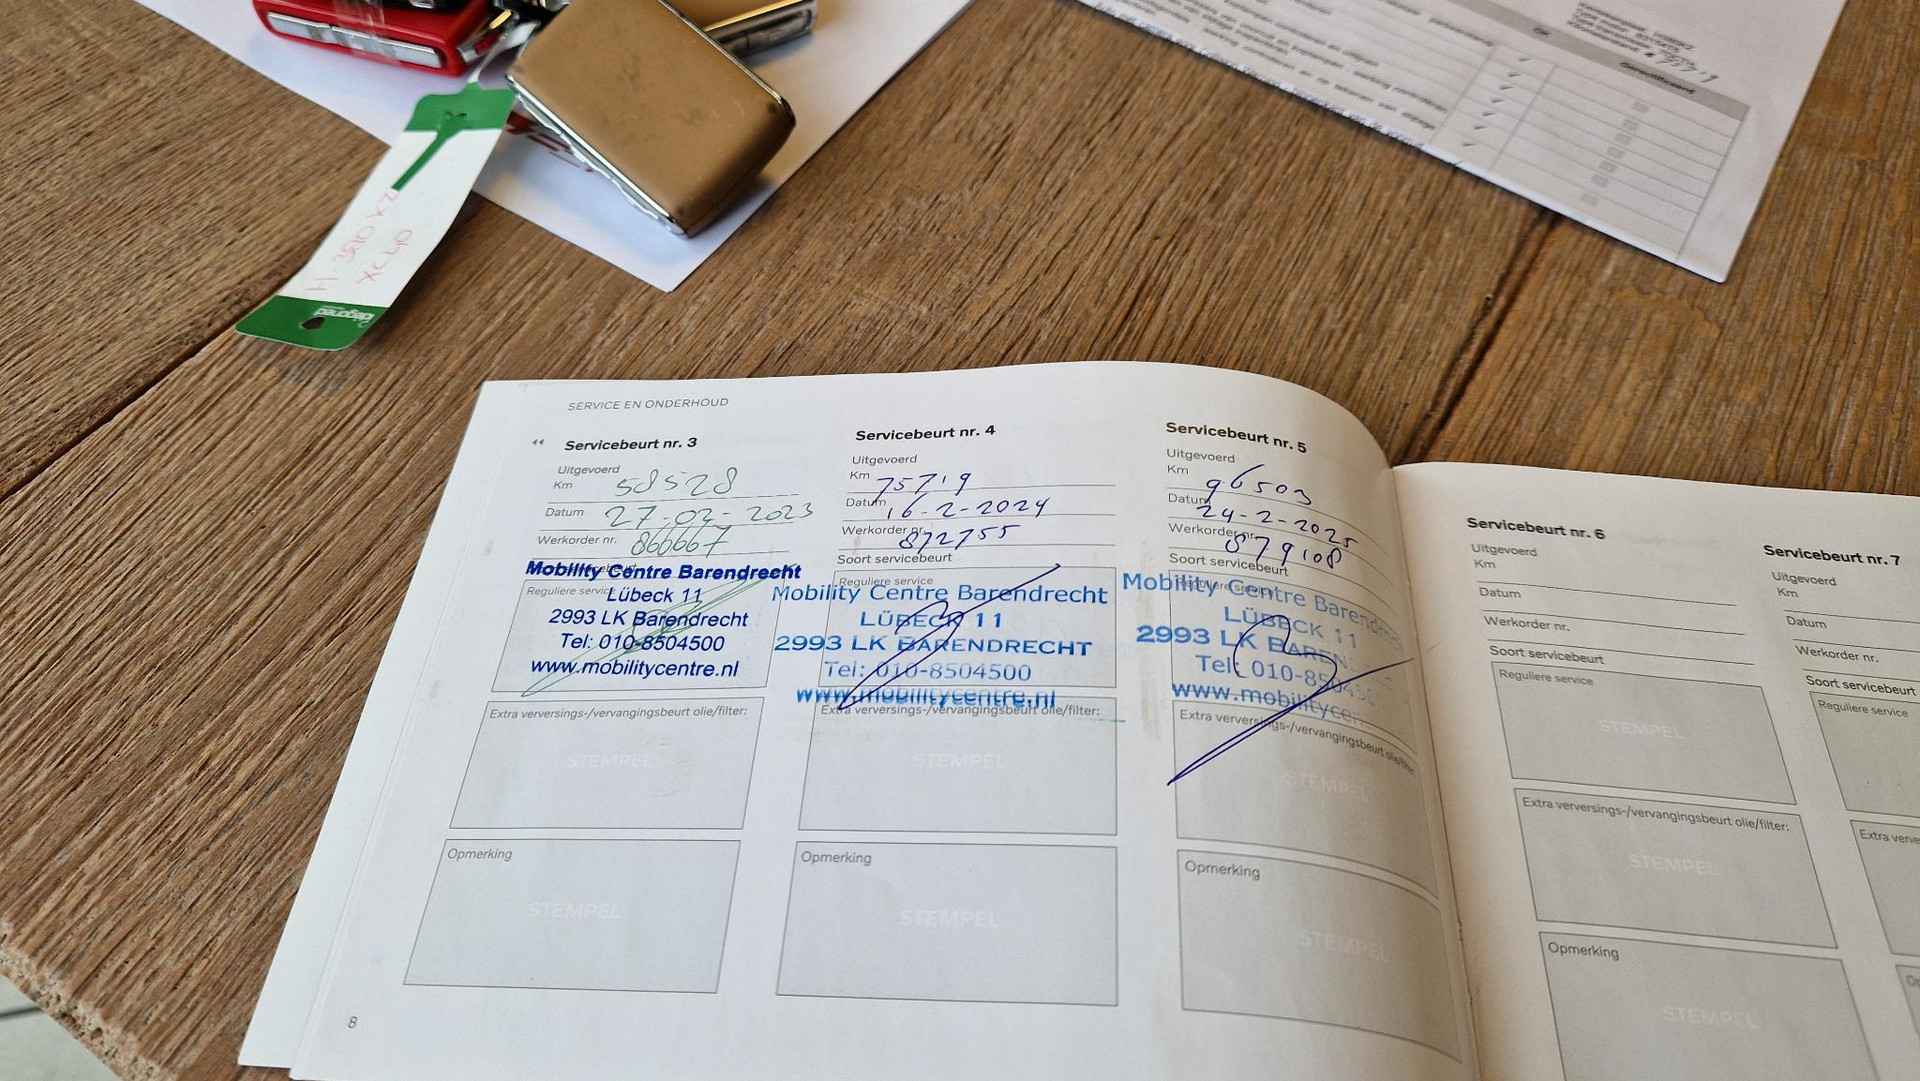 SERVICE EN ONDERHOUD
Servicebeurt nr. 3
Uitgevoerd
Km 58528
Datum 27-02-2023
Werkorder nr. 866667
Mobility Centre Barendrecht
Reguliere service
Lübeck 11
2993 LK Barendrecht
Tel: 010-8504500
www.mobilitycentre.nl
Extra verversings-/vervangingsbeurt olie/filter:
STEMPEL
Opmerking
STEMPEL
8
Servicebeurt nr. 4
Uitgevoerd
Km 75719
Datum 16-2-2024
Werkorder nr. 872755
Soort servicebeurt
Reguliere service
Mobility Centre Barendrecht
LÜBECK 11
2993 LK BARENDRECHT
Tel: 010-8504500
www.mobilitycentre.nl
Extra verversings-/vervangingsbeurt olie/filter:
STEMPEL
Opmerking
STEMPEL
Servicebeurt nr. 5
Uitgevoerd
Km 96503
Datum 24-2-2025
Werkorder nr. 879108
Soort servicebeurt
Reguliere service
Mobility Centre Barendrecht
LÜBECK 11
2993 LK BAREN
Tel: 010-8504500
www.mobilitycen
Extra verversings-/vervangingsbeurt olie/filter:
STEMPEL
Opmerking
STEMPEL
Servicebeurt nr. 6
Uitgevoerd
Km
Datum
Werkorder nr.
Soort servicebeurt
Reguliere service
STEMPEL
Extra verversings-/vervangingsbeurt olie/filter:
STEMPEL
Opmerking
STEMPEL
Servicebeurt nr. 7
Uitgevoerd
Km
Datum
Werkorder nr.
Soort servicebeurt
Reguliere service
Extra verve
XC40
OK